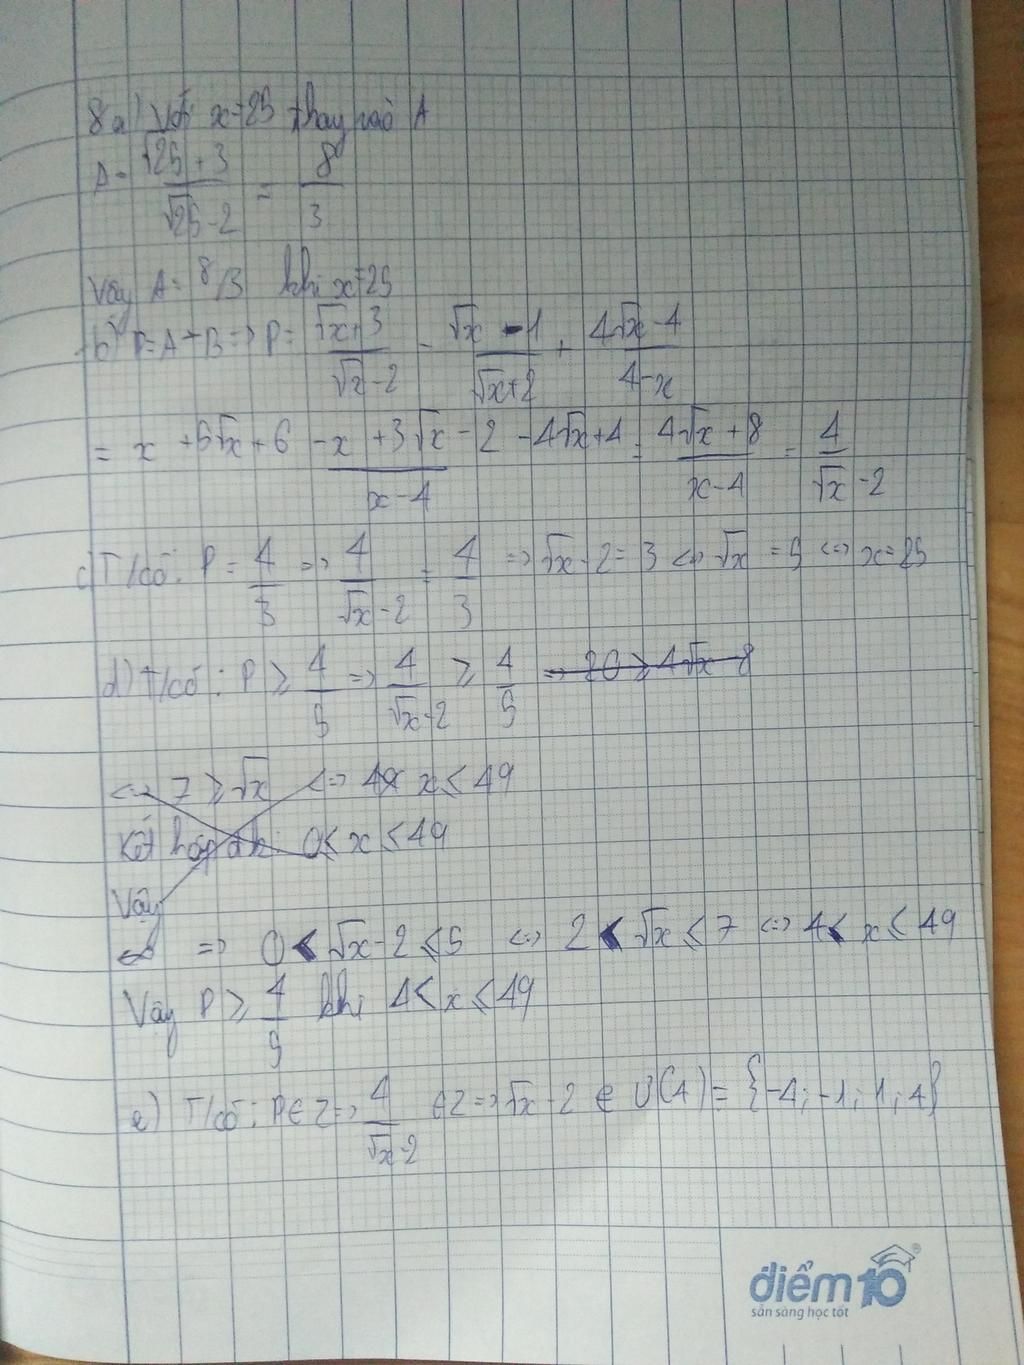 8a) Với x=25 thay vào A
A = (√25 + 3)/(√25 - 2) = 8/3
Vậy A = 8/3 khi x=25
b) P=A+B => P = (√x+3)/(√x-2) - (√x-1)/(√x+2) + (4√x-4)/(4-x)
= (x +5√x + 6 - x + 3√x - 2 - 4√x + 4)/(x-4) = (4√x + 8)/(x-4) = 4/(√x-2)
c) T/có: P = 4/3 => 4/(√x-2) = 4/3 => √x-2 = 3 <=> √x = 5 <=> x=25
d) T/có: P ≥ 4/5 => 4/(√x-2) ≥ 4/5 => 20 ≥ 4√x-8
<=> 7 ≥ √x <=> x ≤ 49
Kết hợp đk: 0≤ x ≤ 49
Vậy
=> 0 < √x-2 ≤ 5 <=> 2 < √x ≤ 7 <=> 4 < x ≤ 49
Vậy P ≥ 4/5 khi 4< x ≤ 49
e) T/có: P∈Z => 4/(√x-2) ∈Z => √x-2 ∈ Ư(4) = {-4; -1; 1; 4}
điểm10
sẵn sàng học tốt